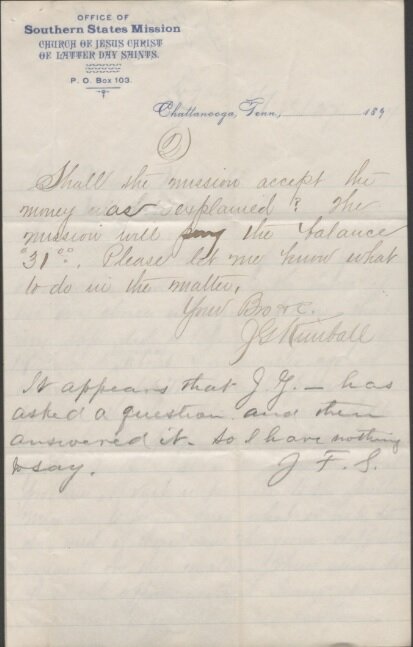 OFFICE OF
Southern States Mission
CHURCH OF JESUS CHRIST
OF LATTER DAY SAINTS.
P. O. Box 103.
Chattanooga, Tenn., 189
2
Shall the mission accept the
money as explained? The
mission will pay the balance
$31.00. Please let me know what
to do in the matter.
Your Bro &c.
J G Kimball
It appears that J. G. — has
asked a question and then
answered it. So I have nothing
to say. J. F. S.